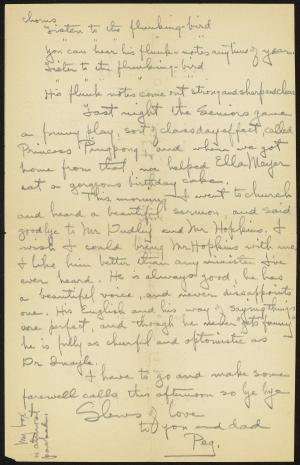 chorus
Listen to the flunking-bird
You can hear his flunk-notes anytime of year
Listen to the flunking-bird
His flunk notes come out strong and sharp and clear
Last night the Seniors gave
a funny play, sort of class day affect called
Princess Pingpong, and when we got
home from that we helped Ella Meyer
eat a gorgeous birthday cake.
This morning I went to church
and heard a beautiful sermon, and said
goodbye to Mr Dudley and Mr Hopkins. I
wish I could bring Mr Hopkins with me
I like him better than any minister I've
ever heard. He is always good, he has
a beautiful voice, and never disappoints
one. His English and his way of saying things
are perfect, and though he never gets funny
he is fully as cheerful and optomistic as
Dr Quayle.
I have to go and make some
farewell calls this afternoon so bye bye
Slews of love
to you and dad
Peg.
My box
is almost